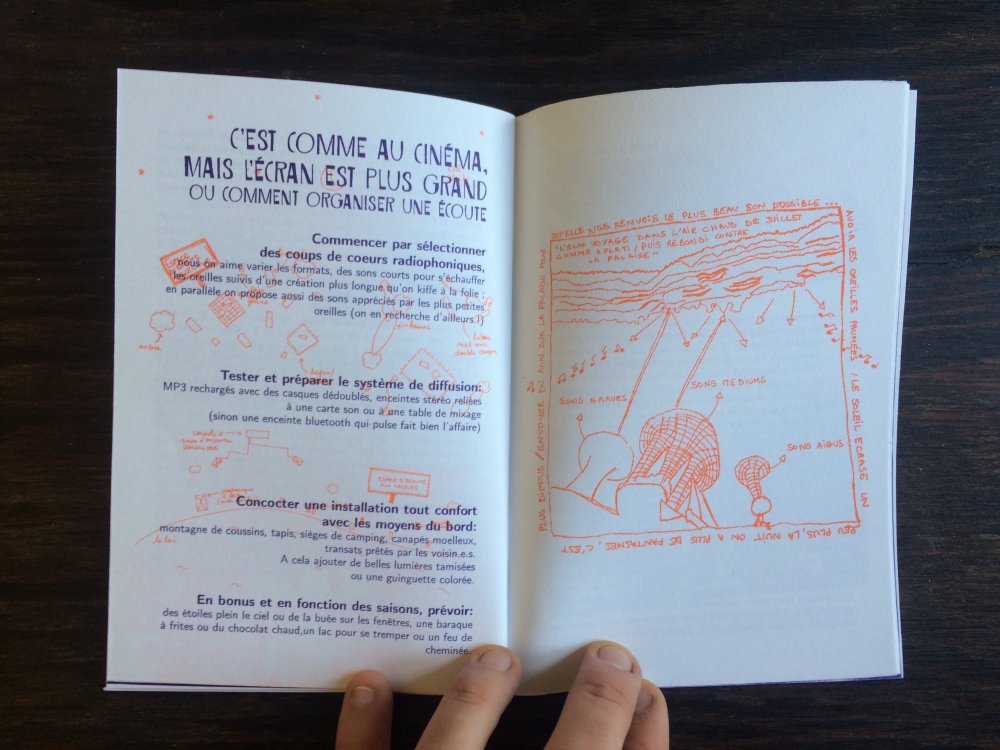 C'EST COMME AU CINÉMA,
MAIS L'ÉCRAN EST PLUS GRAND
OU COMMENT ORGANISER UNE ÉCOUTE
Commencer par sélectionner
des coups de coeurs radiophoniques,
nous on aime varier les formats, des sons courts pour s'échauffer
les oreilles suivis d'une création plus longue qu'on kiffe à la folie ;
en parallèle on propose aussi des sons appréciés par les plus petites
oreilles (on en recherche d'ailleurs !)
Tester et préparer le système de diffusion:
MP3 rechargés avec des casques dédoublés, enceintes stéréo reliées
à une carte son ou à une table de mixage
(sinon une enceinte bluetooth qui pulse fait bien l'affaire)
ESPACE D'ÉCOUTE
AUX CASQUES
Concocter une installation tout confort
avec les moyens du bord:
montagne de coussins, tapis, sièges de camping, canapés moelleux,
transats prêtés par les voisin.e.s.
A cela ajouter de belles lumières tamisées
ou une guinguette colorée.
le lac
En bonus et en fonction des saisons, prévoir:
des étoiles plein le ciel ou de la buée sur les fenêtres, une baraque
à frites ou du chocolat chaud,un lac pour se tremper ou un feu de
cheminée.
QU'ELLE NOUS RENVOIE LE PLUS BEAU SON POSSIBLE ...
"L'ÉCHO VOYAGE DANS L'AIR CHAUD DE JUILLET
COMME APLATI, PUIS REBONDI CONTRE
LA FALAISE"
AVOIR LES OREILLES PAUMÉES / LE SOLEIL ECRASE UN
PEU PLUS, LA NUIT ON A PLUS DE FANTASMES, C'EST
PLUS DIFFUS / ENVOYER DU SON SUR LA FALAISE POUR
SONS GRAVES
SONS MEDIUMS
SONS AIGUS